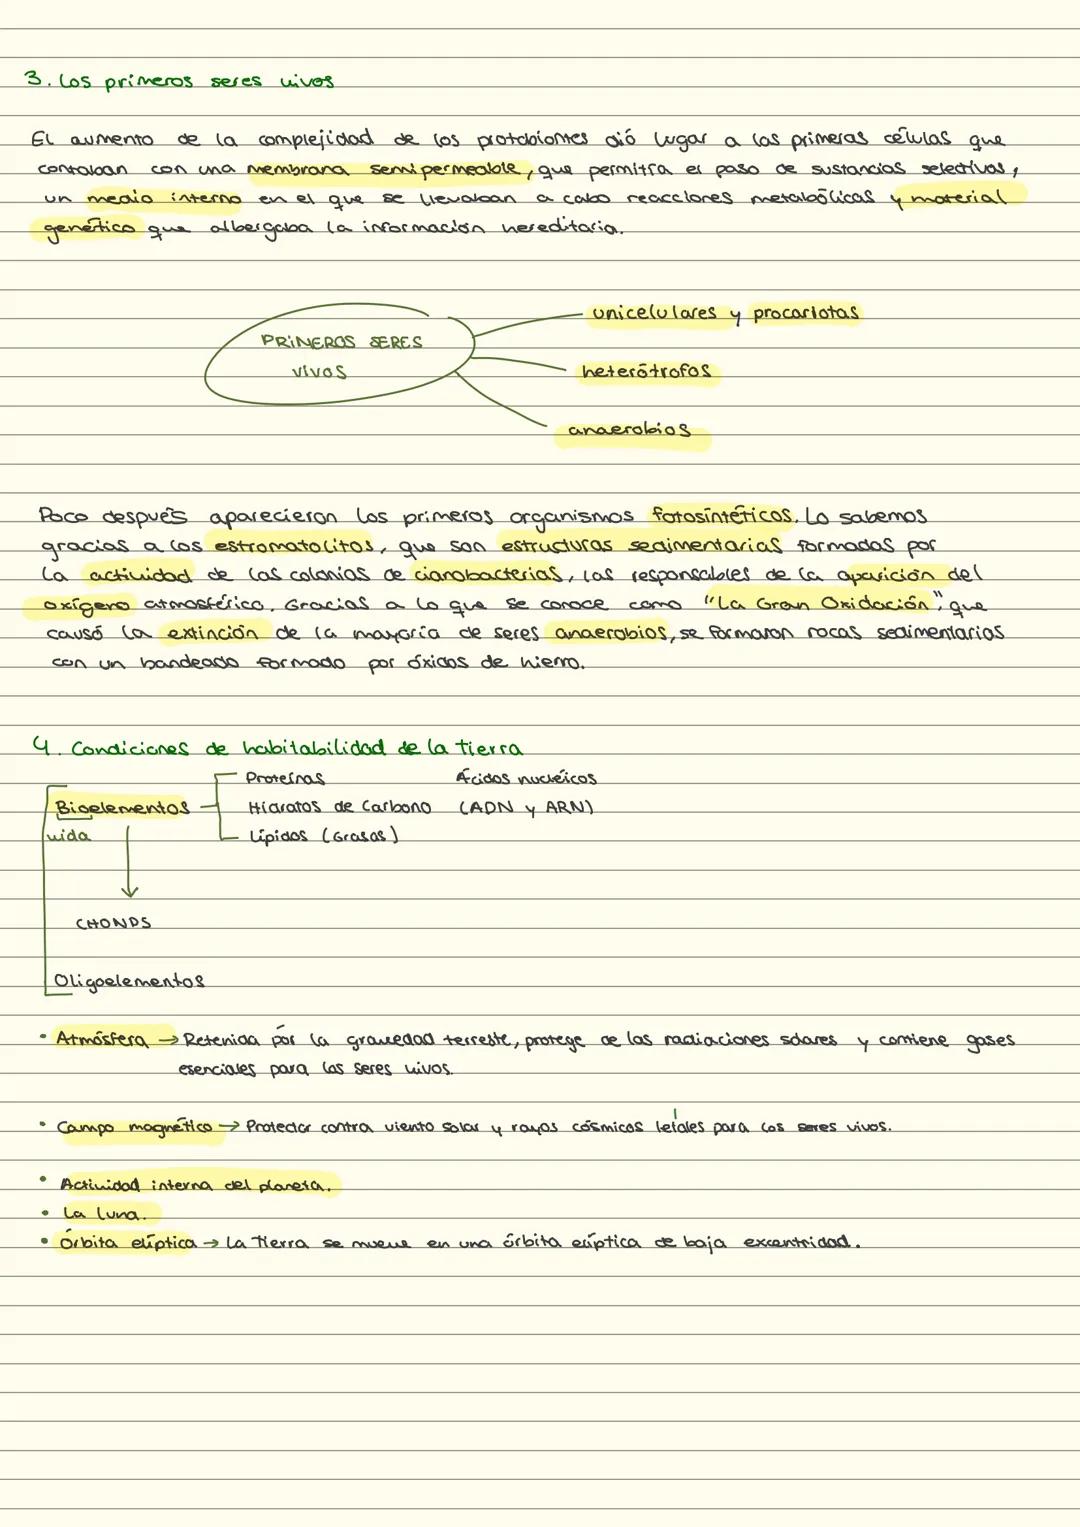 3. Los primeros seres vivos
El aumento de la complejidad de los protobiontes dió lugar a las primeras células que
contaban con una membrana semipermeable, que permitía el paso de sustancias selectivas,
un medio interno en el que se llevaban a cabo reacciones metabólicas y material
genético que albergaba la información hereditaria.
PRIMEROS SERES
vivos
unicelulares y procariotas
heterótrofos
anaerobios
Poco después aparecieron los primeros organismos fotosintéticos. Lo sabemos
gracias a los estromatolitos, que son estructuras sedimentarias formadas por
la actividad de las colonias de cianobacterias, las responsables de la aparición del
oxígeno atmosférico. Gracias a lo que se conoce como "La Gran Oxidación", que
causó la extinción de la mayoría de seres anaerobios, se formaron rocas sedimentarias
con un bandeado formado por óxidos de hierro.
4. Condiciones de habitabilidad de la tierra
Proteínas Ácidos nucléicos
Bioelementos Hidratos de Carbono (ADN y ARN)
vida Lípidos (Grasas)
CHONPS
Oligoelementos
• Atmósfera → Retenida por la gravedad terrestre, protege de las radiaciones solares y contiene gases
esenciales para los seres vivos.
• Campo magnético → Protector contra viento solar y rayos cósmicos letales para los seres vivos.
• Actividad interna del planeta.
• La luna.
• Órbita elíptica → La Tierra se mueve en una órbita elíptica de baja excentridad.